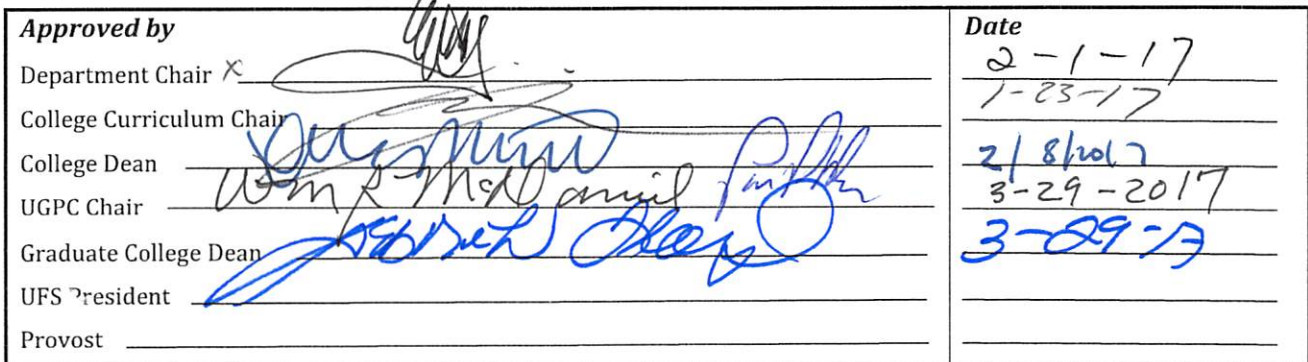 Approved by Date
Department Chair x 2-1-17
College Curriculum Chair 1-23-17
College Dean 2/8/2017
UGPC Chair Wm R McDaniel 3-29-2017
Graduate College Dean 3-29-17
UFS President
Provost